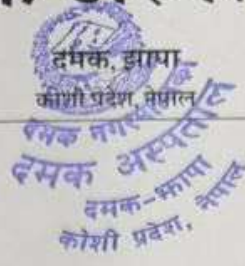 दमक, झापा
कोशी प्रदेश, नेपाल
दमक अस्पताल
दमक-झापा
कोशी प्रदेश, नेपाल